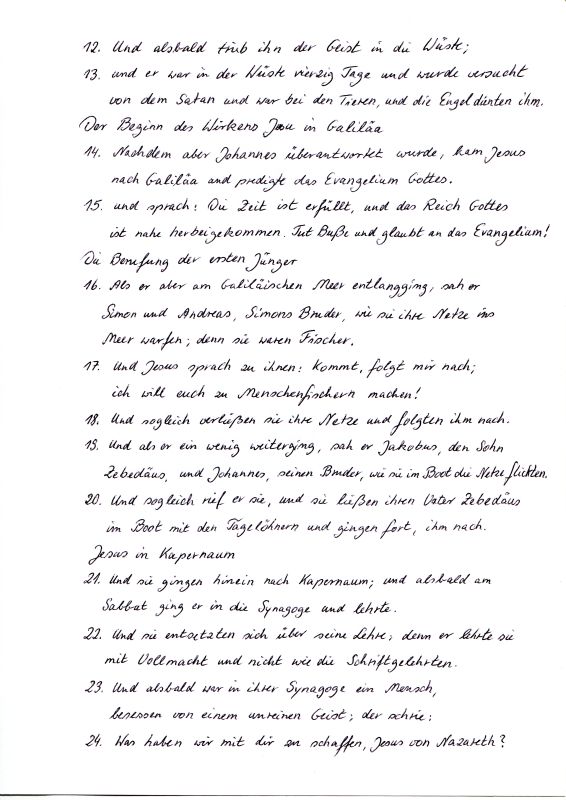 12. Und alsbald trieb ihn der Geist in die Wüste;
13. und er war in der Wüste vierzig Tage und wurde versucht
von dem Satan und war bei den Tieren, und die Engel dienten ihm.
Der Beginn des Wirkens Jesu in Galiläa
14. Nachdem aber Johannes überantwortet wurde, kam Jesus
nach Galiläa und predigte das Evangelium Gottes.
15. und sprach: Die Zeit ist erfüllt, und das Reich Gottes
ist nahe herbeigekommen. Tut Buße und glaubt an das Evangelium!
Die Berufung der ersten Jünger
16. Als er aber am Galiläischen Meer entlangging, sah er
Simon und Andreas, Simons Bruder, wie sie ihre Netze ins
Meer warfen; denn sie waren Fischer.
17. Und Jesus sprach zu ihnen: Kommt, folgt mir nach;
ich will euch zu Menschenfischern machen!
18. Und sogleich verließen sie ihre Netze und folgten ihm nach.
19. Und als er ein wenig weiterging, sah er Jakobus, den Sohn
Zebedäus, und Johannes, seinen Bruder, wie sie im Boot die Netze flickten.
20. Und sogleich rief er sie, und sie ließen ihren Vater Zebedäus
im Boot mit den Tagelöhnern und gingen fort, ihm nach.
Jesus in Kapernaum
21. Und sie gingen hinein nach Kapernaum; und alsbald am
Sabbat ging er in die Synagoge und lehrte.
22. Und sie entsetzten sich über seine Lehre; denn er lehrte sie
mit Vollmacht und nicht wie die Schriftgelehrten.
23. Und alsbald war in ihrer Synagoge ein Mensch,
besessen von einem unreinen Geist; der schrie:
24. Was haben wir mit dir zu schaffen, Jesus von Nazareth?